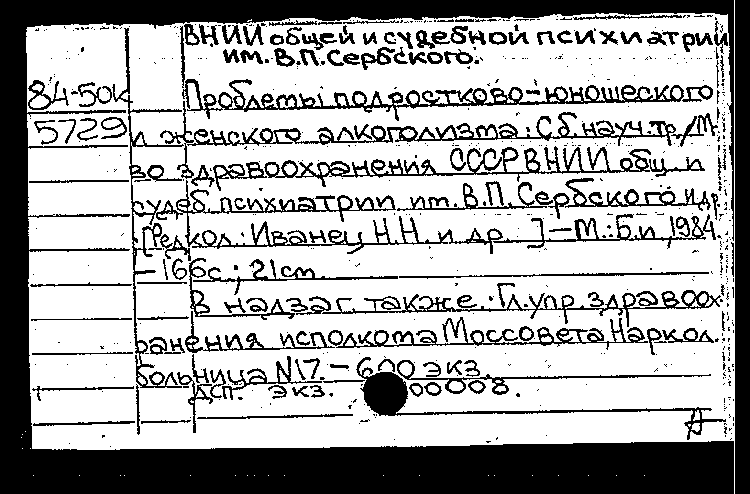 ВНИИ общей и судебной психиатрии
им. В.П. Сербского.
84-50к Проблемы подростково-юношеского
5729 и женского алкоголизма: Сб. науч. тр. / М-
во здравоохранения СССР ВНИИ общ. и
судеб. психиатрии им. В.П. Сербского и др.
; [Редкол.: Иванец Н.Н. и др. ] – М.: Б.и, 1984.
– 166с.; 21см.
В надзаг. также: Гл. упр. здравоох
ранения исполкома Моссовета, Наркол.
больница N17. – 600 экз.
ДСП. экз. 00008.
А